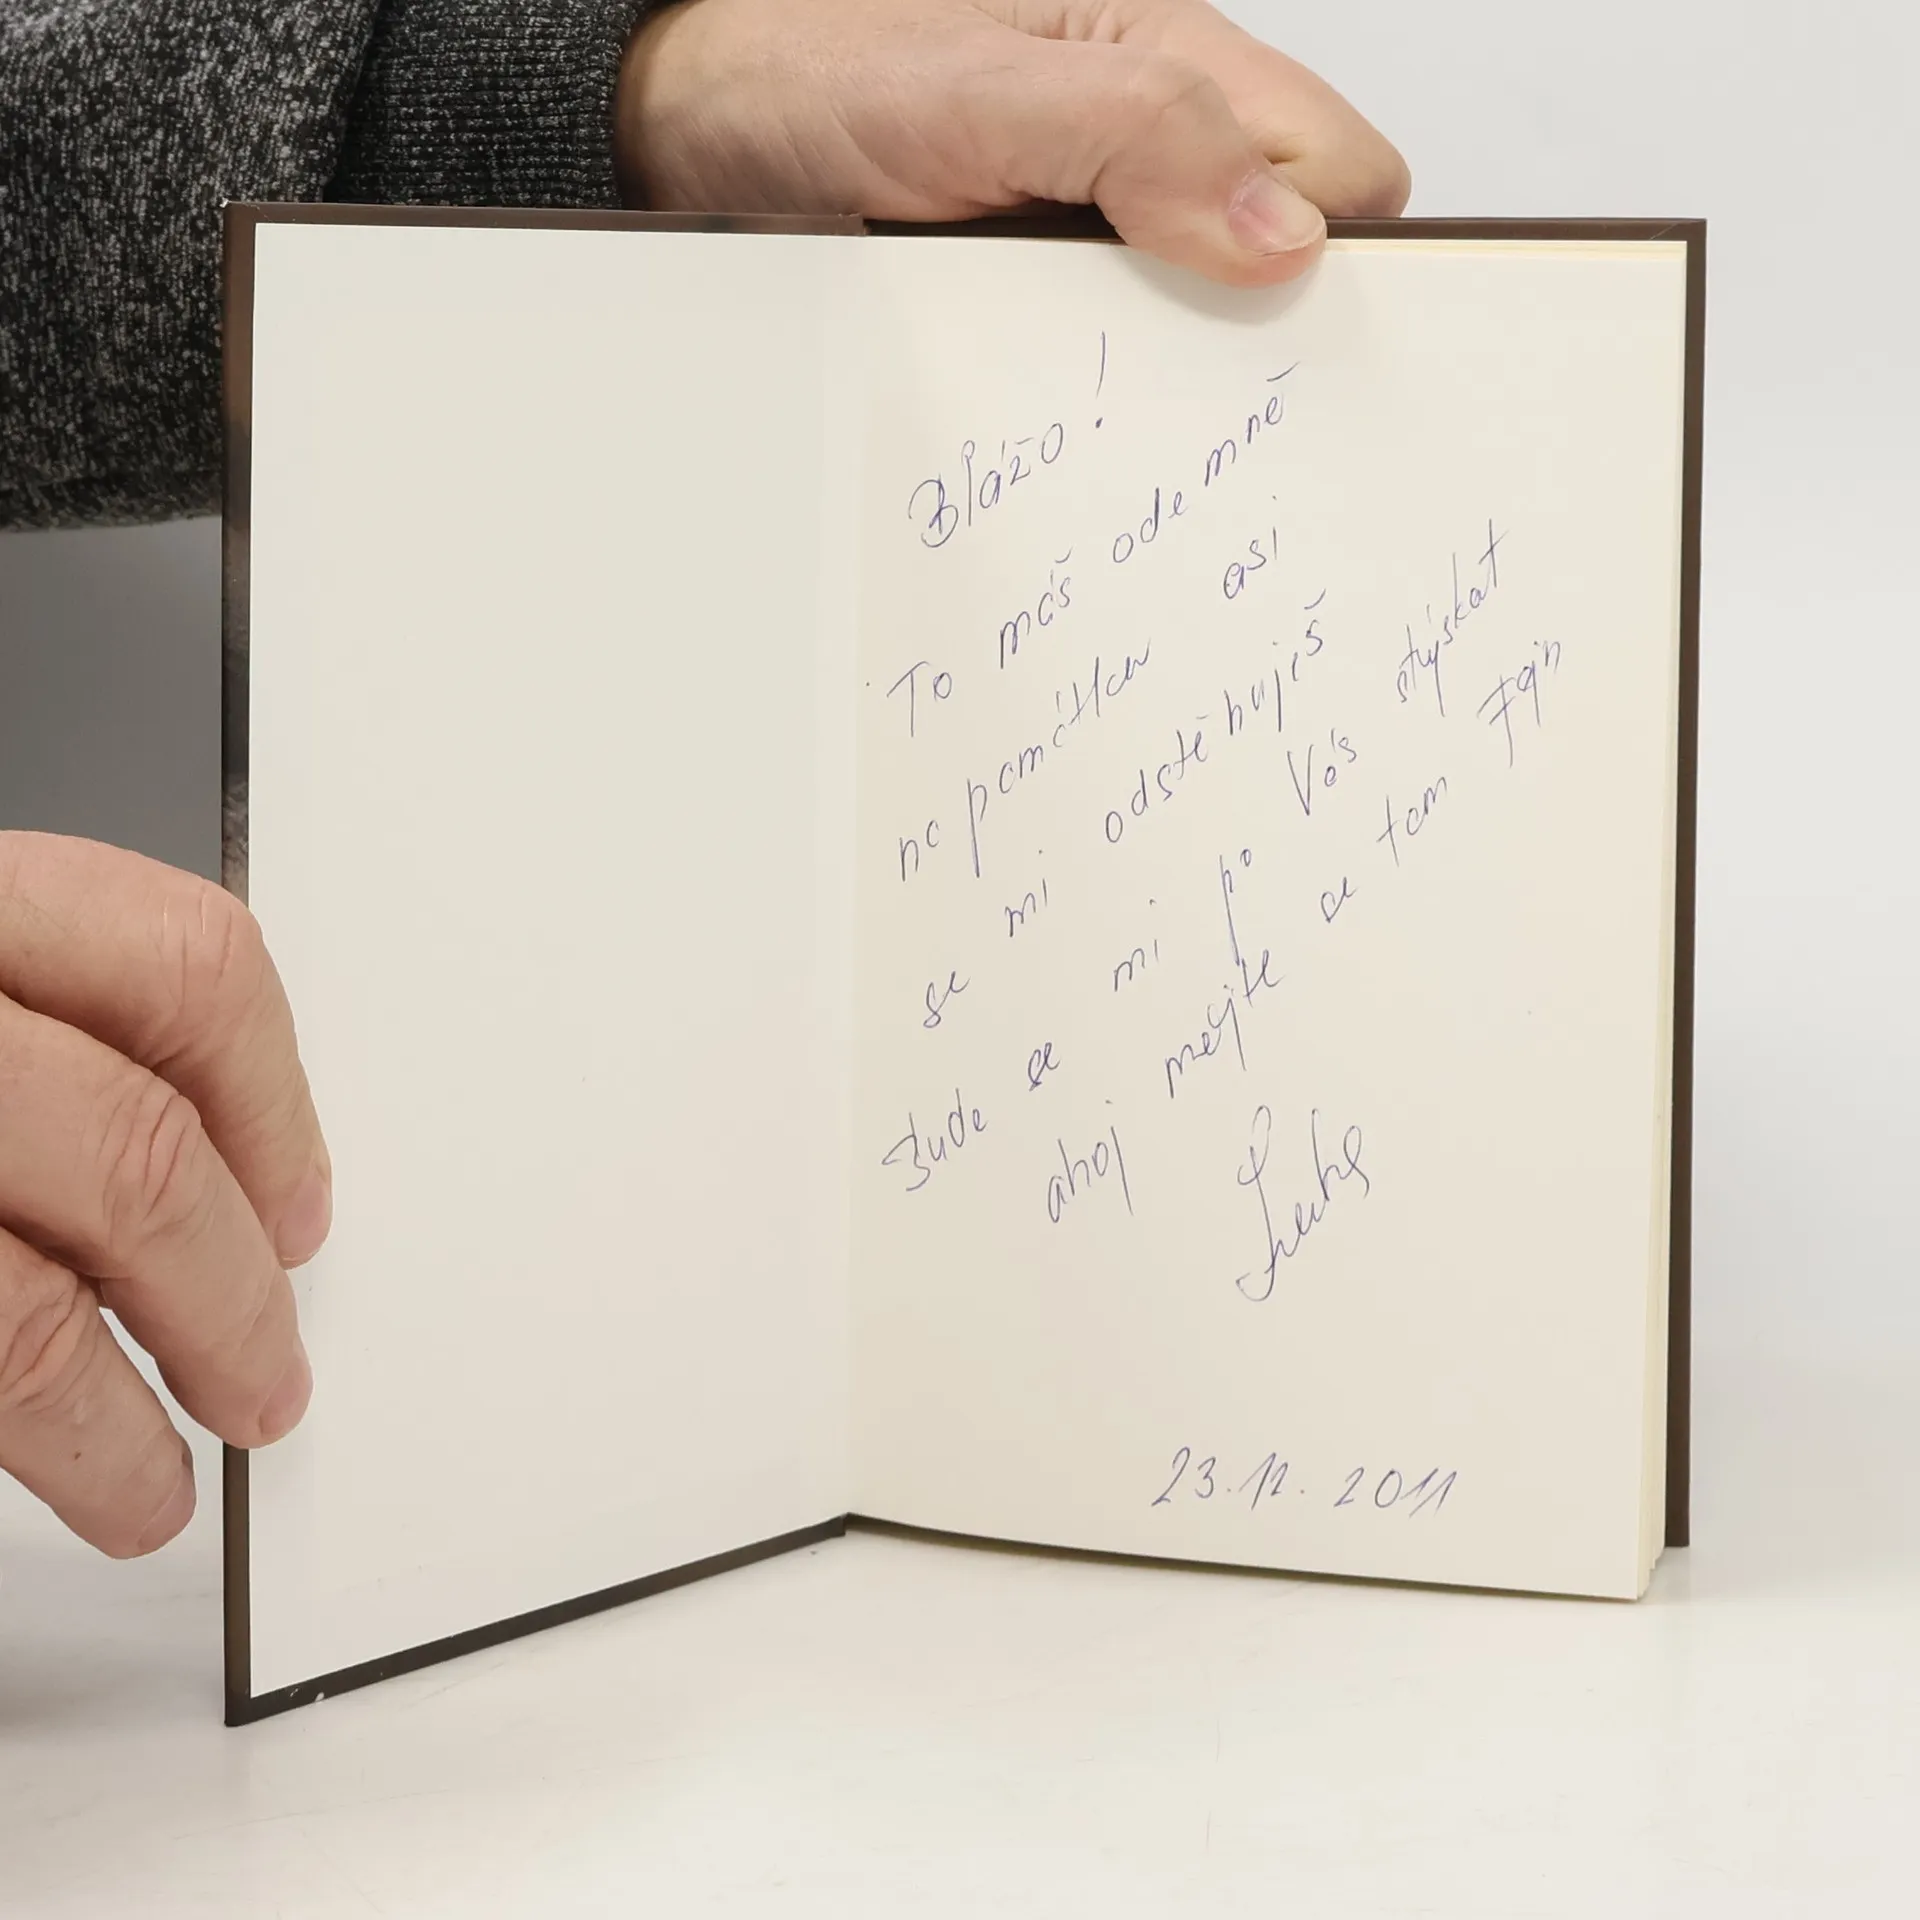 Blážo!
To máš ode mně
na památku asi
se mi odstěhuješ
Bude se mi po Vás stýskat
ahoj mějte se tam Fajn
23.12.2011